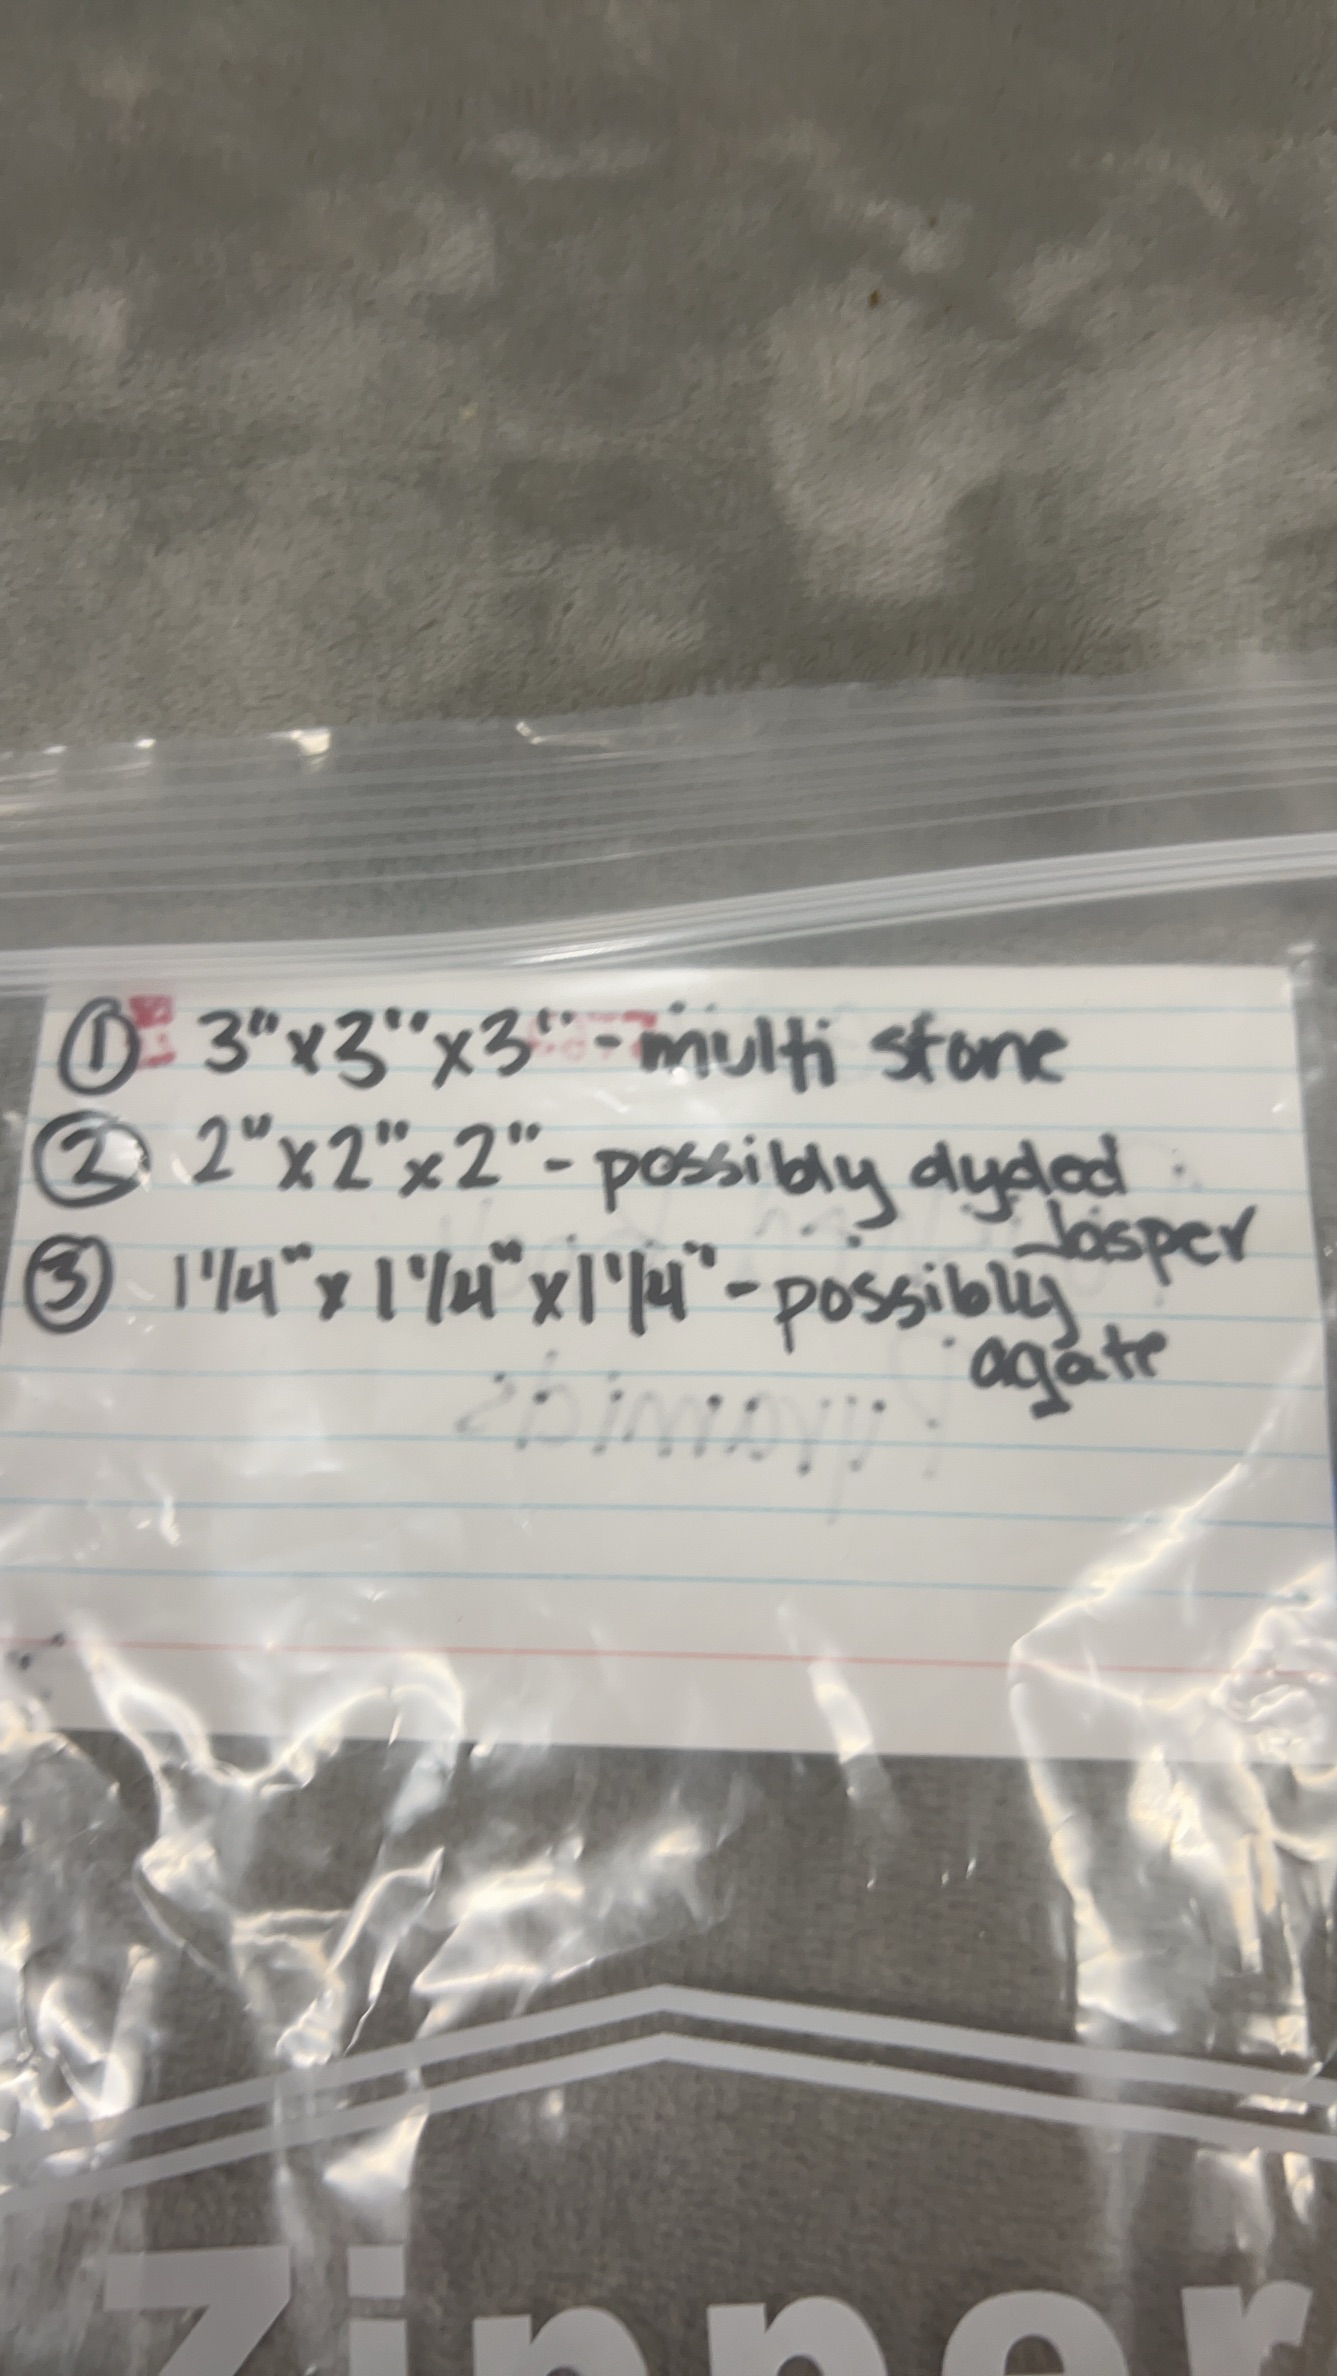 ① 3"x3"x3" - multi stone
② 2"x2"x2" - possibly dyded
Jasper
③ 1 1/4" x 1 1/4" x 1 1/4" - possibly
agate
Pyramids
Zipper